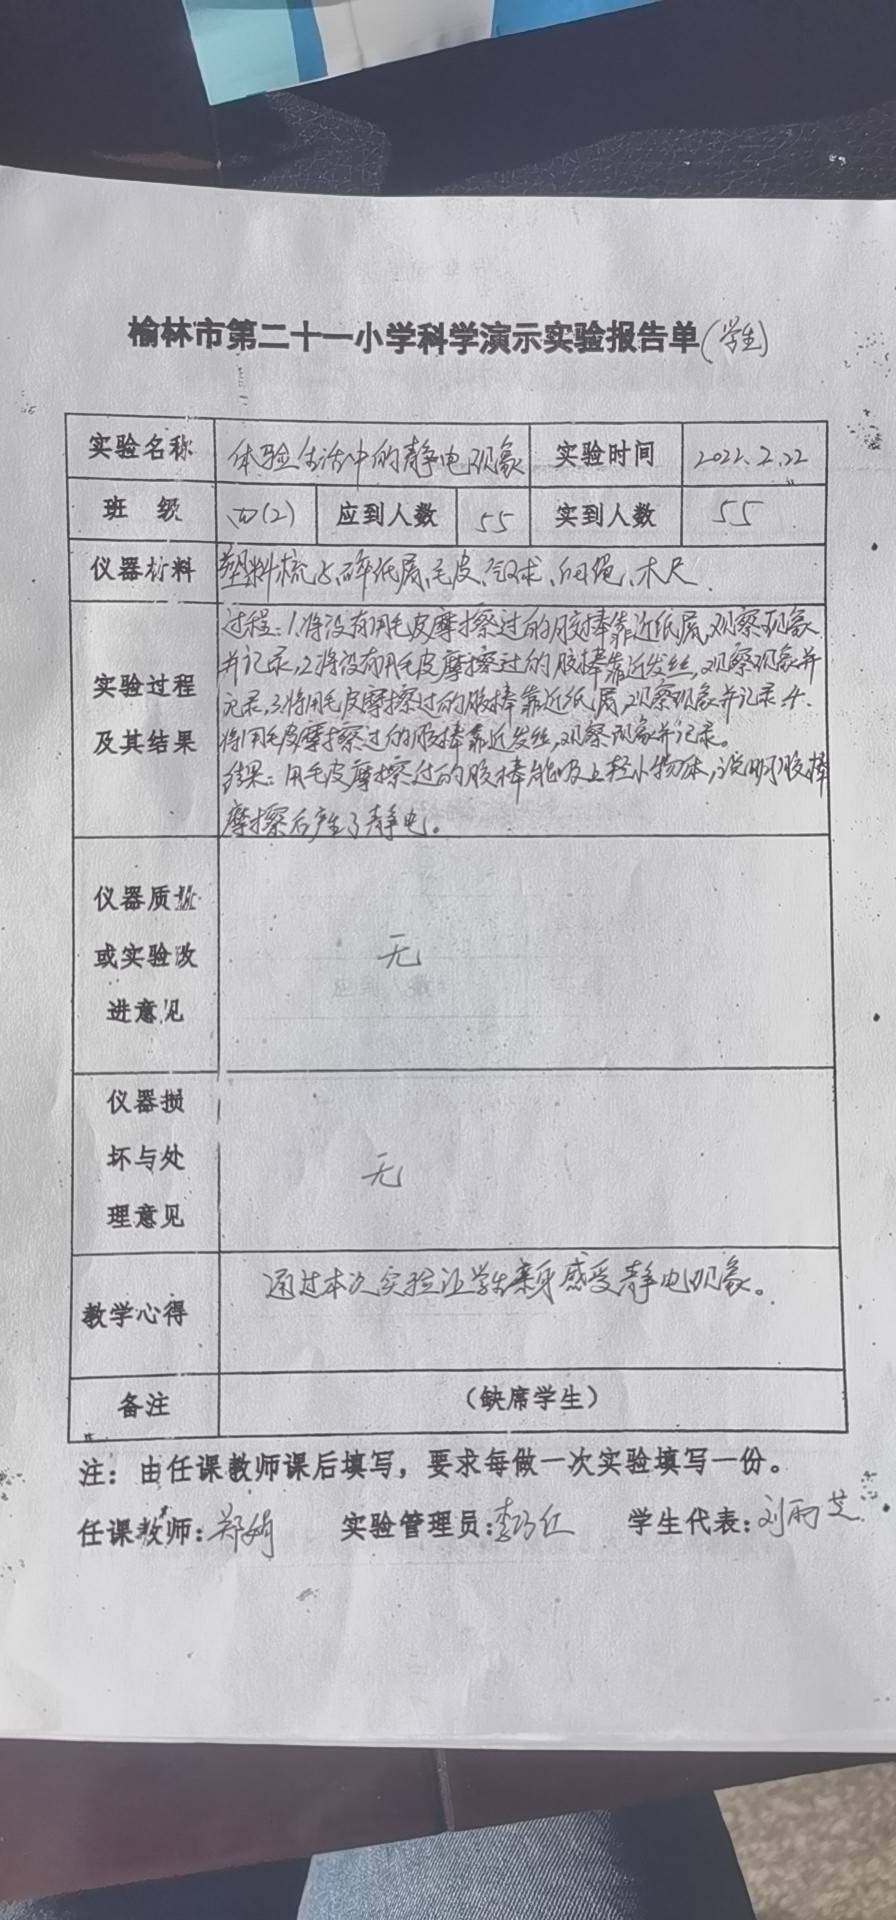 榆林市第二十一小学科学演示实验报告单(学生)
实验名称 体验生活中的静电现象 实验时间 2022.2.22
班 级 四(2) 应到人数 55 实到人数 55
仪器材料 塑料梳子、碎纸屑、毛皮、气球、细绳、木尺
过程:1.将没有用毛皮摩擦过的胶棒靠近纸屑,观察现象
并记录,2.将没有用毛皮摩擦过的胶棒靠近发丝,观察现象并
实验过程 记录,3.将用毛皮摩擦过的胶棒靠近纸屑,观察现象并记录.4.
及其结果 将用毛皮摩擦过的胶棒靠近发丝,观察现象并记录。
结果:用毛皮摩擦过的胶棒能吸上轻小物体,说明胶棒
摩擦后产生了静电。
仪器质量
或实验改 无
进意见
仪器损
坏与处 无
理意见
教学心得 通过本次实验让学生亲身感受静电现象。
备注 (缺席学生)
注:由任课教师课后填写,要求每做一次实验填写一份。
任课教师:郑娟 实验管理员:李巧红 学生代表:刘雨芝